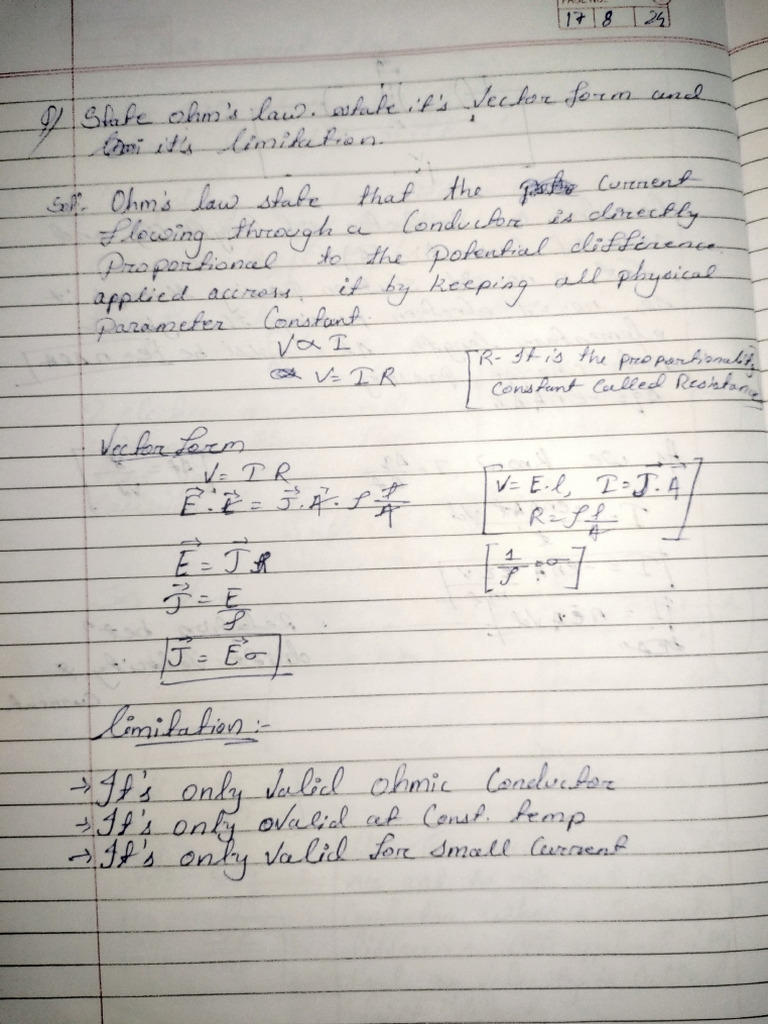 PAGE NO.
17 8 24
Q/ State ohm's law. state it's Vector form and
it's limitation.
Solⁿ. Ohm's law state that the Current
flowing through a Conductor is directly
Proportional to the Potential difference
applied accross it by keeping all physical
Parameter Constant.
V ∝ I
V = I R
[R- It is the proportionality
constant called Resistance
Vector form
V = I R
[V = E.l, I = J⃗.A⃗
R = ρ l/A]
E⃗.l⃗ = J⃗.A⃗. ρ l/A
E⃗ = J⃗ ρ
[1/ρ = σ]
J⃗ = E/ρ
J⃗ = E⃗σ
limitation :-
→ It's only valid ohmic Conductor
→ It's only valid at Const. temp
→ It's only valid for small Current